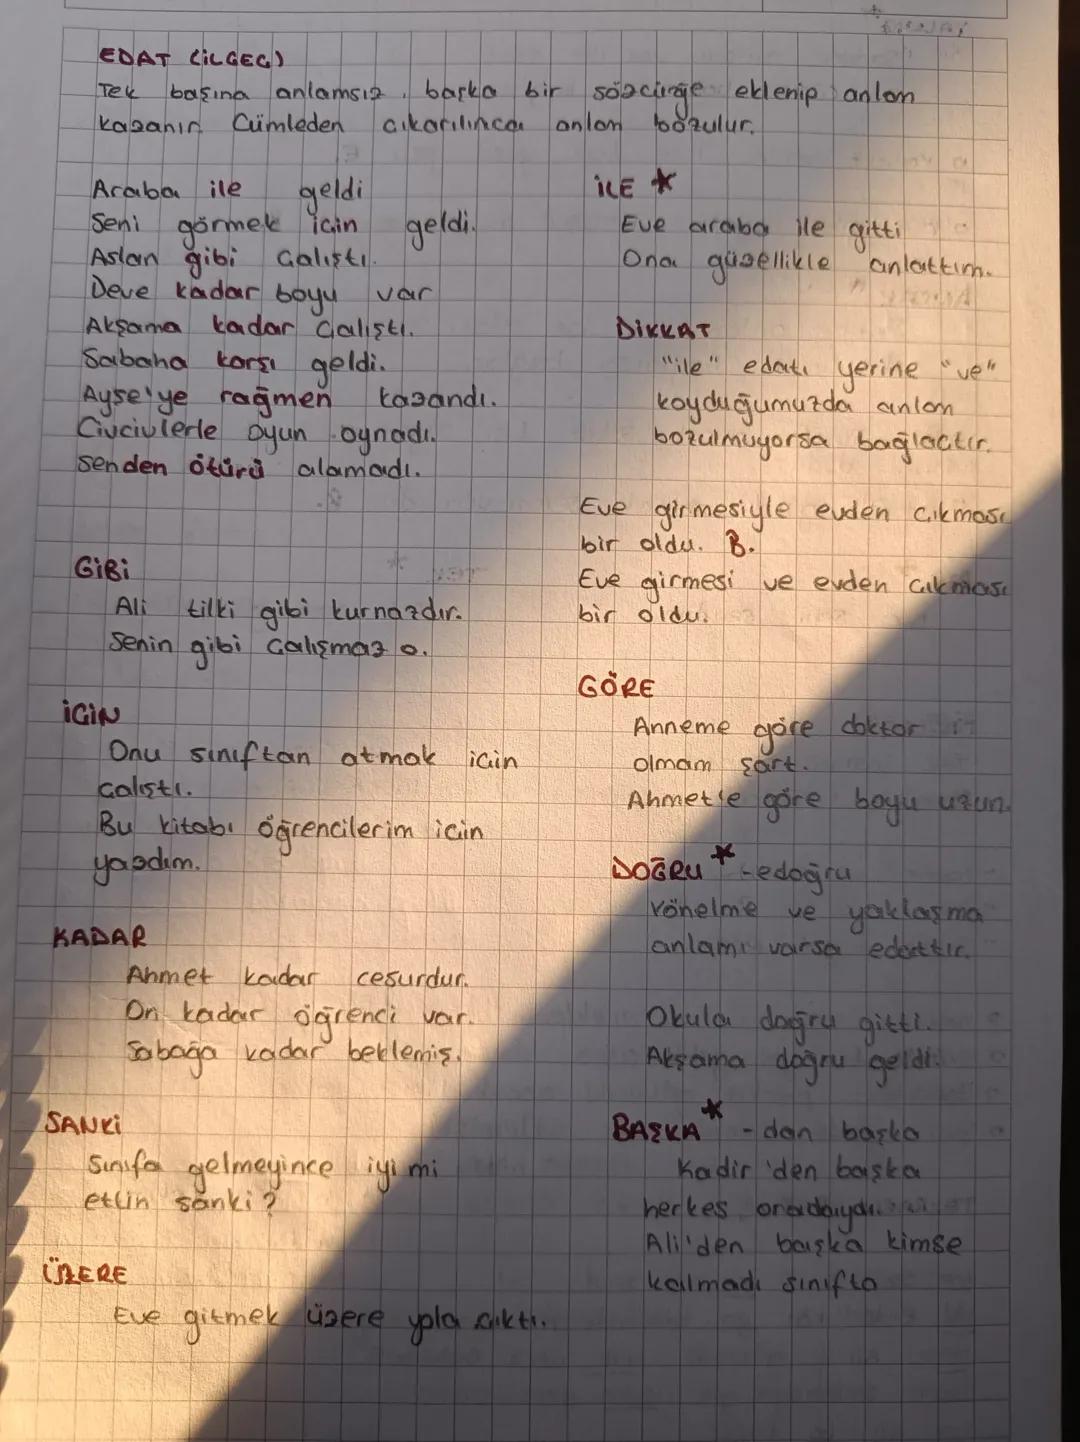 EDAT (İLGEÇ)
Tek başına anlamsız, başka bir sözcüğe eklenip anlam
kazanır. Cümleden çıkarılınca anlam bozulur.
Araba ile geldi
Seni görmek için geldi.
Aslan gibi çalıştı.
Deve kadar boyu var
Akşama kadar çalıştı.
Sabaha karşı geldi.
Ayşe'ye rağmen kazandı.
Civcivlerle oyun oynadı.
Senden ötürü alamadı.
GİBİ
Ali tilki gibi kurnazdır.
Senin gibi çalışmaz o.
İÇİN
Onu sınıftan atmak için
çalıştı.
Bu kitabı öğrencilerim için
yazdım.
KADAR
Ahmet kadar cesurdur.
On kadar öğrenci var.
Sabağa kadar beklemiş.
SANKİ
Sınıfa gelmeyince iyi mi
ettin sanki?
ÜZERE
Eve gitmek üzere yola çıktı.
İLE *
Eve araba ile gitti
Ona güzellikle anlattım.
DİKKAT
"ile" edatı yerine "ve"
koyduğumuzda anlam
bozulmuyorsa bağlaçtır.
Eve girmesiyle evden çıkması
bir oldu. B.
Eve girmesi ve evden çıkması
bir oldu.
GÖRE
Anneme göre doktor
olmam şart.
Ahmet'e göre boyu uzun.
DOĞRU * -e doğru
Yönelme ve yaklaşma
anlamı varsa edattır.
Okula doğru gitti.
Akşama doğru geldi.
BAŞKA * -dan başka
Kadir'den başka
herkes oradaydı.
Ali'den başka kimse
kalmadı sınıfta